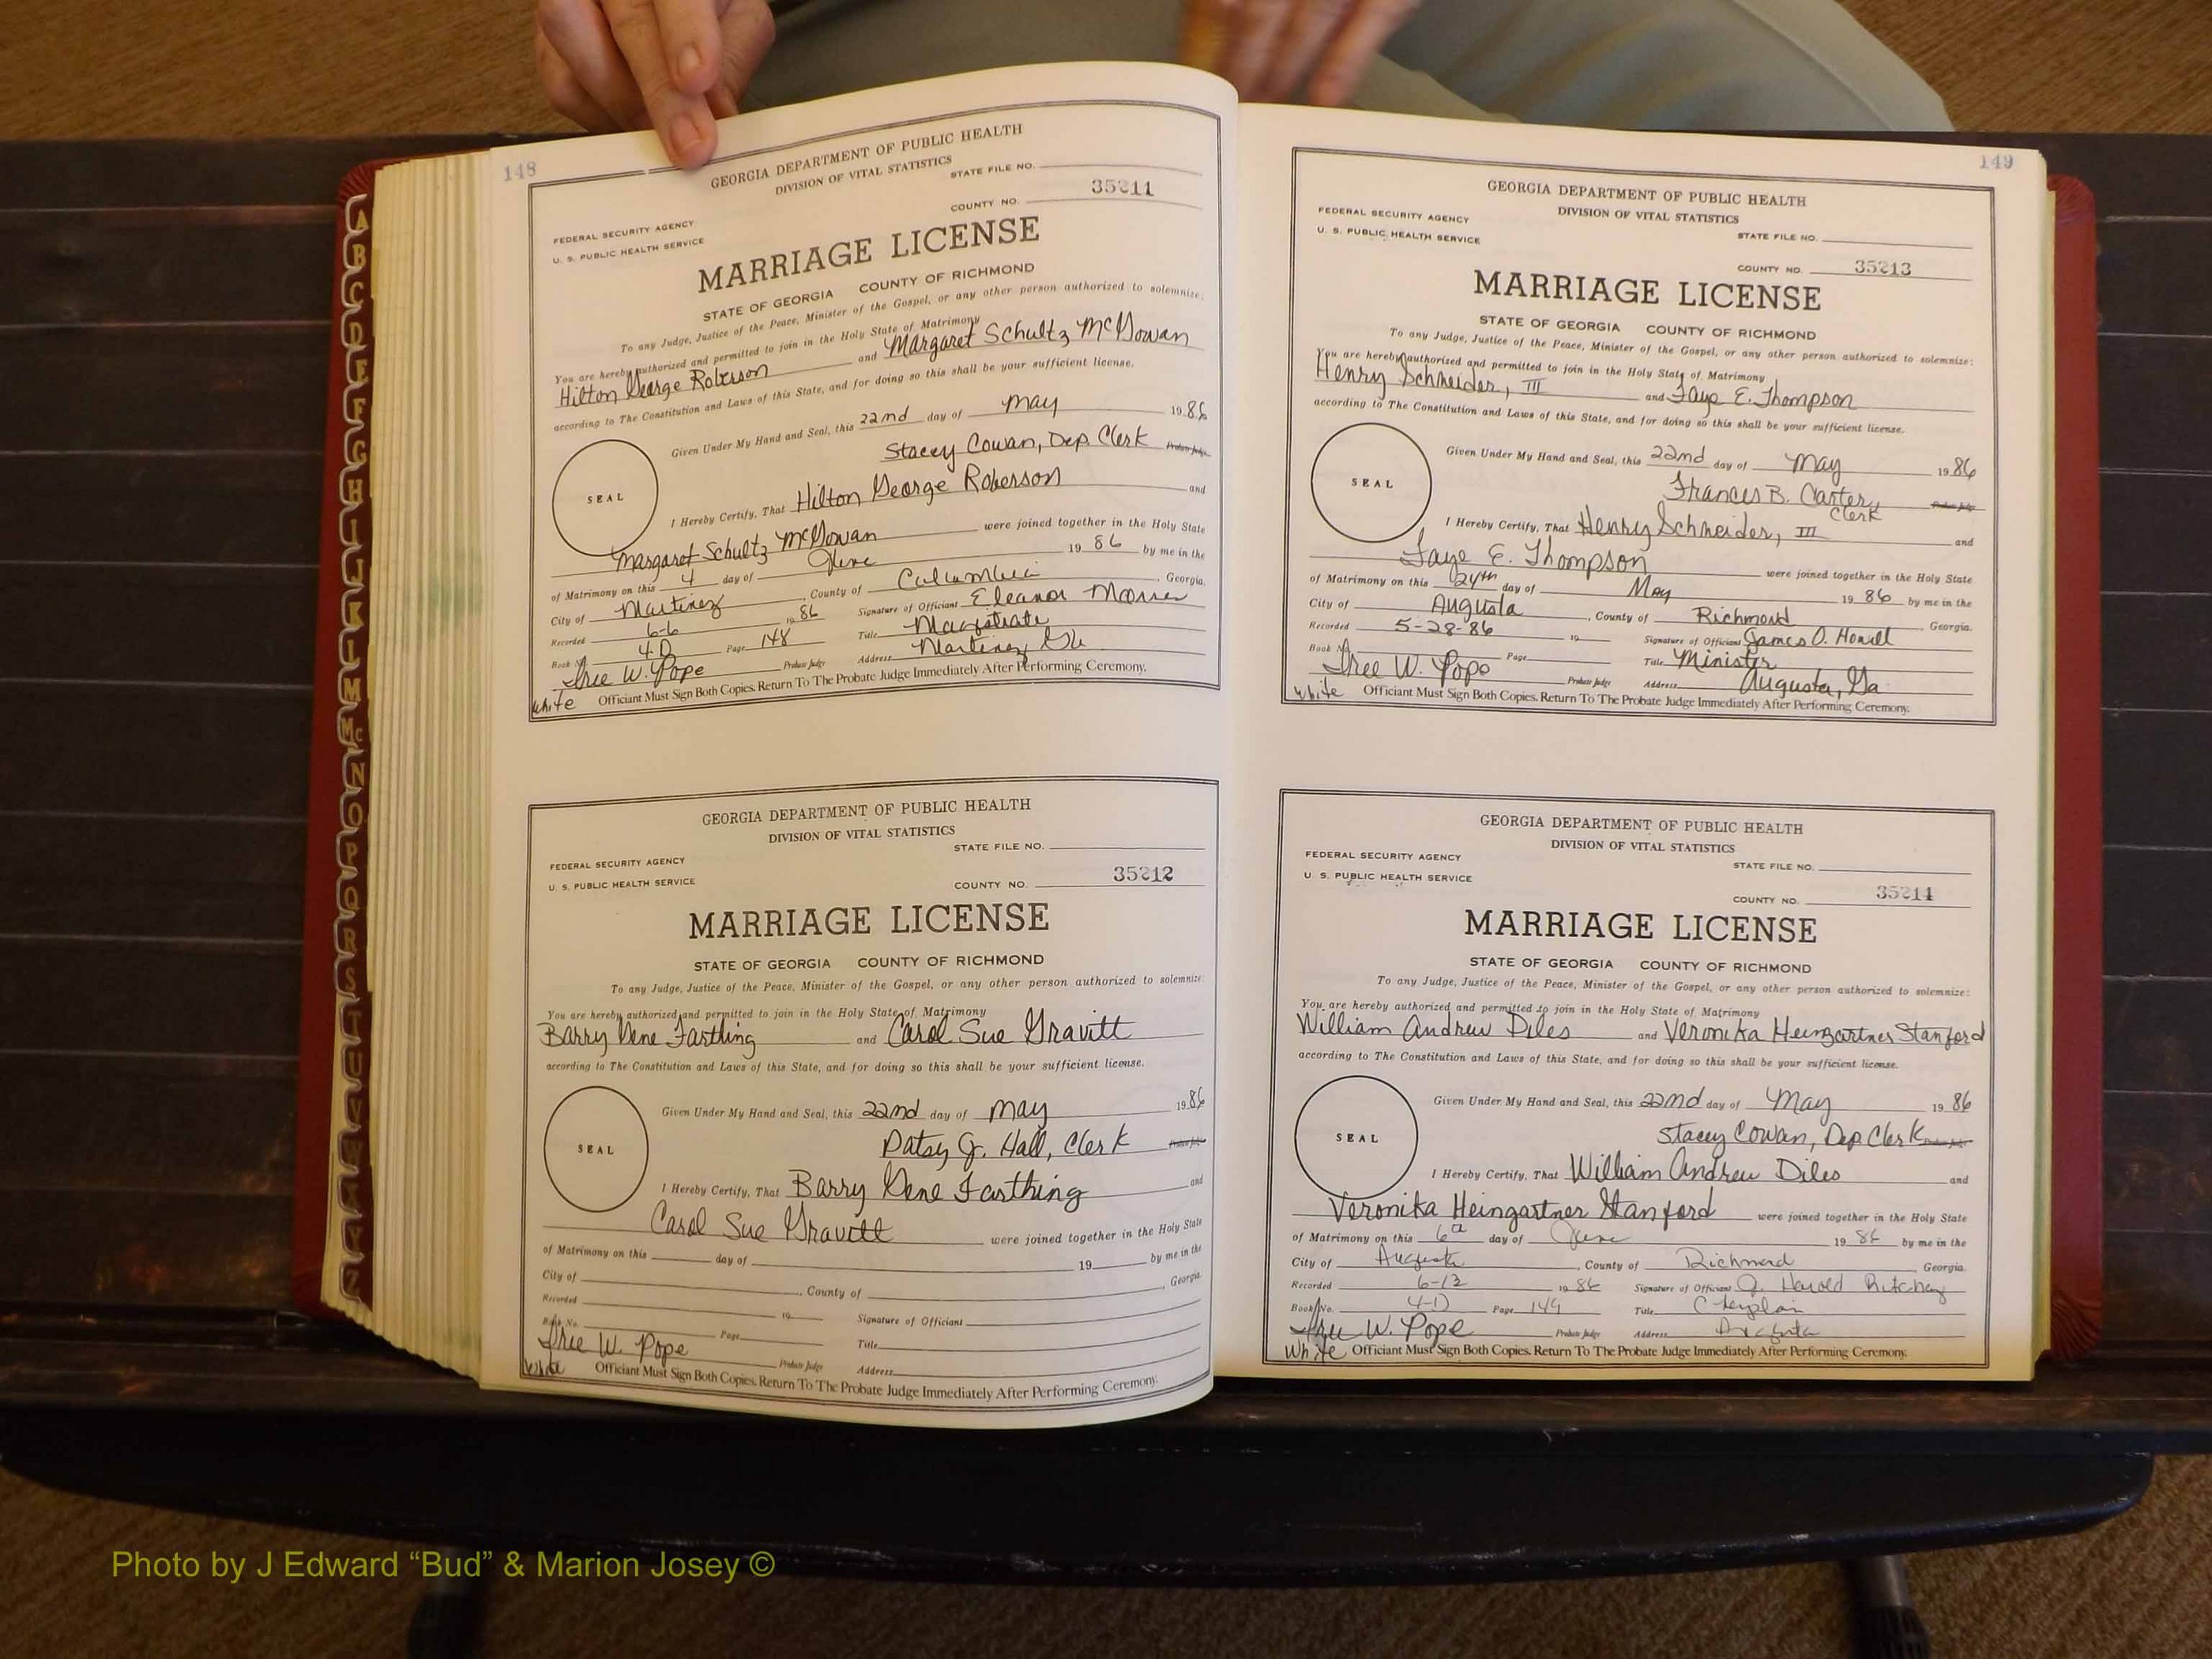 148
GEORGIA DEPARTMENT OF PUBLIC HEALTH
DIVISION OF VITAL STATISTICS
STATE FILE NO.
35211
COUNTY NO.
FEDERAL SECURITY AGENCY
U. S. PUBLIC HEALTH SERVICE
MARRIAGE LICENSE
STATE OF GEORGIA COUNTY OF RICHMOND
To any Judge, Justice of the Peace, Minister of the Gospel, or any other person authorized to solemnize:
You are hereby authorized and permitted to join in the Holy State of Matrimony
Hilton George Roberson and Margaret Schultz McGowan
according to The Constitution and Laws of this State, and for doing so this shall be your sufficient license.
Given Under My Hand and Seal, this 22nd day of May 1986
Stacey Cowan, Dep. Clerk Probate Judge
SEAL
I Hereby Certify, That Hilton George Roberson and
Margaret Schultz McGowan were joined together in the Holy State
of Matrimony on this 4 day of June 19 86 by me in the
City of Martinez, County of Columbia, Georgia.
Recorded 6-6 19 86 Signature of Officiant Eleanor
Book No. 4-D Page 148 Title Magistrate
Free W. Pope Probate Judge Address Martinez Ga
White Officiant Must Sign Both Copies. Return To The Probate Judge Immediately After Performing Ceremony.
GEORGIA DEPARTMENT OF PUBLIC HEALTH
DIVISION OF VITAL STATISTICS
STATE FILE NO.
FEDERAL SECURITY AGENCY
U. S. PUBLIC HEALTH SERVICE
COUNTY NO. 35212
MARRIAGE LICENSE
STATE OF GEORGIA COUNTY OF RICHMOND
To any Judge, Justice of the Peace, Minister of the Gospel, or any other person authorized to solemnize:
You are hereby authorized and permitted to join in the Holy State of Matrimony
Barry Gene Farthing and Carol Sue Gravitt
according to The Constitution and Laws of this State, and for doing so this shall be your sufficient license.
Given Under My Hand and Seal, this 22nd day of May 1986
Patsy J. Hall, Clerk Probate Judge
SEAL
I Hereby Certify, That Barry Gene Farthing and
Carol Sue Gravitt were joined together in the Holy State
of Matrimony on this day of 19 by me in the
City of , County of , Georgia.
Recorded 19 Signature of Officiant
Book No. Page Title
Free W. Pope Probate Judge Address
White Officiant Must Sign Both Copies. Return To The Probate Judge Immediately After Performing Ceremony.
149
GEORGIA DEPARTMENT OF PUBLIC HEALTH
DIVISION OF VITAL STATISTICS
FEDERAL SECURITY AGENCY
U. S. PUBLIC HEALTH SERVICE
STATE FILE NO.
COUNTY NO. 35213
MARRIAGE LICENSE
STATE OF GEORGIA COUNTY OF RICHMOND
To any Judge, Justice of the Peace, Minister of the Gospel, or any other person authorized to solemnize:
You are hereby authorized and permitted to join in the Holy State of Matrimony
Henry Schneider, III and Faye E. Thompson
according to The Constitution and Laws of this State, and for doing so this shall be your sufficient license.
Given Under My Hand and Seal, this 22nd day of May 1986
Frances B. Carter, Clerk Probate Judge
SEAL
I Hereby Certify, That Henry Schneider, III and
Faye E. Thompson were joined together in the Holy State
of Matrimony on this 24th day of May 19 86 by me in the
City of Augusta, County of Richmond, Georgia.
Recorded 5-28-86 19 Signature of Officiant James O. Howell
Book No. Page Title Minister
Free W. Pope Probate Judge Address Augusta, Ga
White Officiant Must Sign Both Copies. Return To The Probate Judge Immediately After Performing Ceremony.
GEORGIA DEPARTMENT OF PUBLIC HEALTH
DIVISION OF VITAL STATISTICS
FEDERAL SECURITY AGENCY
U. S. PUBLIC HEALTH SERVICE
STATE FILE NO.
COUNTY NO. 35214
MARRIAGE LICENSE
STATE OF GEORGIA COUNTY OF RICHMOND
To any Judge, Justice of the Peace, Minister of the Gospel, or any other person authorized to solemnize:
You are hereby authorized and permitted to join in the Holy State of Matrimony
William Andrew Diles and Veronika Heingartner Stanford
according to The Constitution and Laws of this State, and for doing so this shall be your sufficient license.
Given Under My Hand and Seal, this 22nd day of May 19 86
Stacey Cowan, Dep. Clerk Probate Judge
SEAL
I Hereby Certify, That William Andrew Diles and
Veronika Heingartner Stanford were joined together in the Holy State
of Matrimony on this 6 day of June 19 86 by me in the
City of Augusta, County of Richmond, Georgia.
Recorded 6-13 19 86 Signature of Officiant J. Harold Ritchey
Book No. 4-D Page 149 Title Chaplain
Free W. Pope Probate Judge Address Augusta
White Officiant Must Sign Both Copies. Return To The Probate Judge Immediately After Performing Ceremony.
A
B
C
D
E
F
G
H
I
J
K
L
M
Mc
N
O
P
Q
R
S
T
U
V
W
X
Y
Z
Photo by J Edward “Bud” & Marion Josey ©